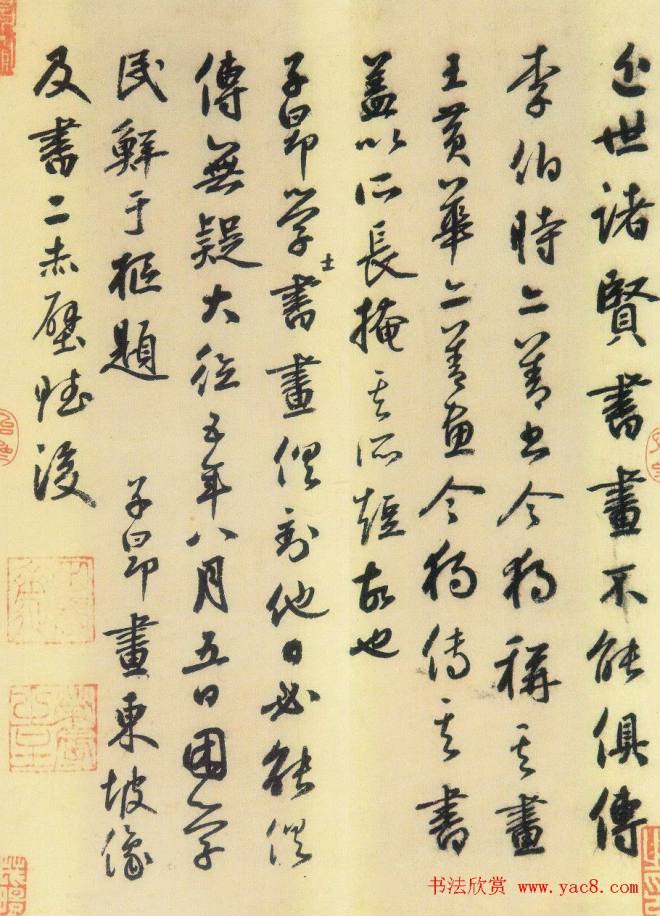 近世諸賢書畫不能俱傳
李伯時亦善書今獨稱其畫
王黃華亦善畫今獨傳其書
蓋以所長掩其所短故也
子昂學士書畫俱到他日必能俱
傳無疑大德五年八月五日困學
民鮮于樞題　子昂畫東坡像
及書二赤壁賦後
书法欣赏 www.yac8.com